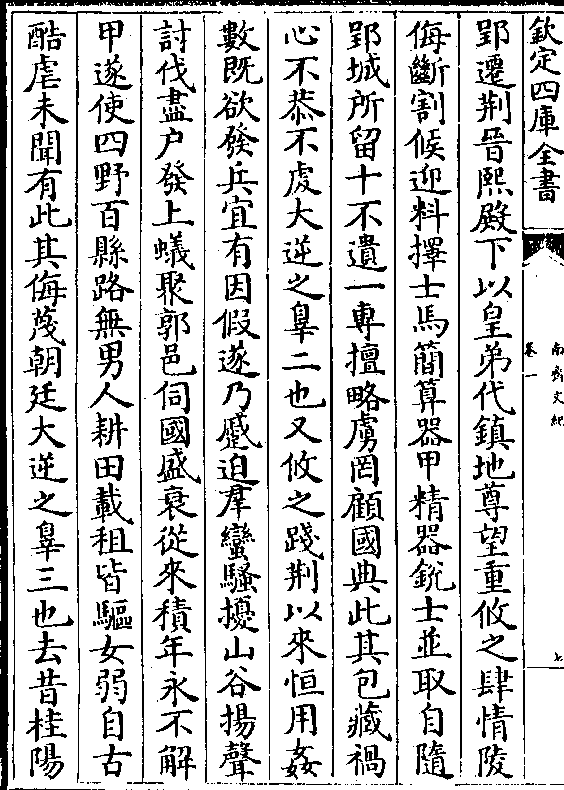 欽定四庫全書
南齊文紀
卷一
七
郢遷荆晉熙殿下以皇弟代鎮地尊望重攸之肆情陵
侮斷割候迎料擇士馬簡算器甲精器銳士並取自隨
郢城所留十不遺一專擅略虜罔顧國典此其包藏禍
心不恭不䖍大逆之辠二也又攸之踐荆以來恒用姦
數既欲發兵宜有因假遂乃蹙迫羣蠻騷擾山谷揚聲
討伐盡户發上蟻聚郭邑伺國盛衰從來積年永不解
甲遂使四野百縣路無男人耕田載租皆驅女弱自古
酷虐未聞有此其侮蔑朝廷大逆之辠三也去昔桂陽